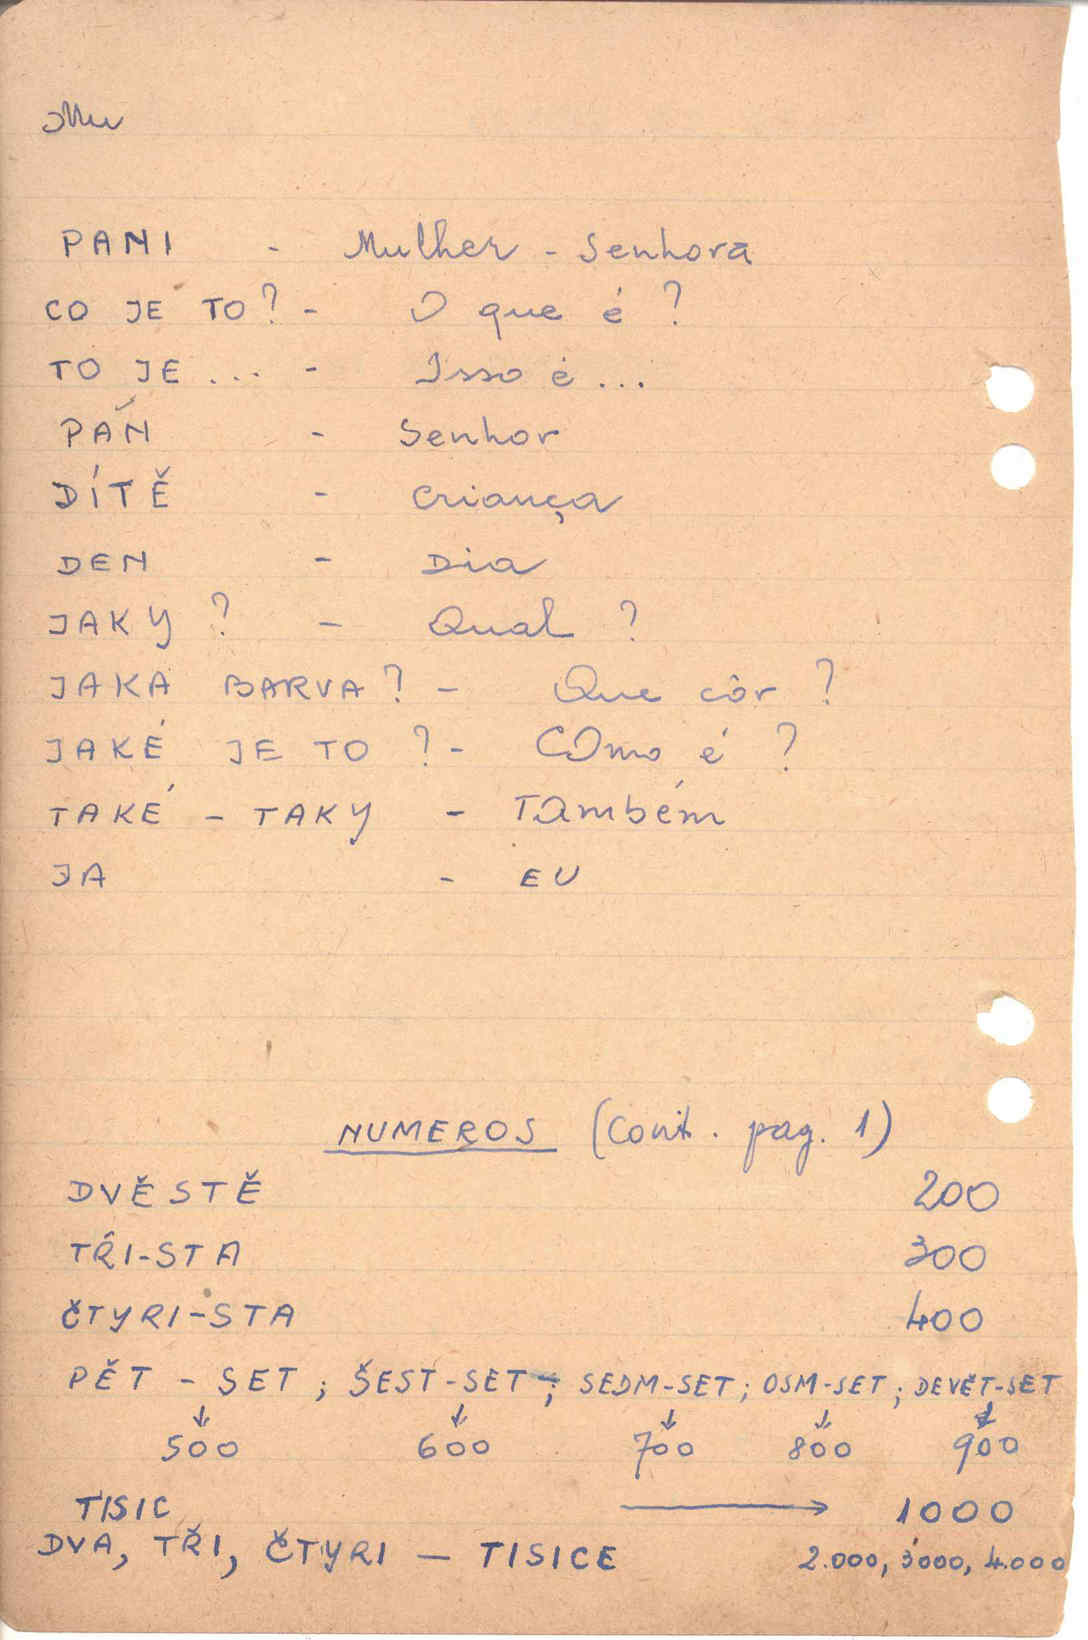 Mu
PANI - Mulher - Senhora
CO JE TO? - O que é ?
TO JE ... - Isso é ...
PÁN - Senhor
DÍTĚ - criança
DEN - Dia
JAKY ? - Qual ?
JAKA BARVA? - Que côr ?
JAKÉ JE TO ? - COmo é ?
TAKÉ - TAKY - Também
JA - EU
NUMEROS (Cont. pag. 1)
DVĚSTĚ 200
TŘI-STA 300
ČTYRI-STA 400
PĚT - SET ; ŠEST-SET ; SEDM-SET ; OSM-SET ; DEVĚT-SET
↓ ↓ ↓ ↓ ↓
500 600 700 800 900
TISIC → 1000
DVA, TŘI, ČTYRI — TISICE 2.000, 3000, 4.000